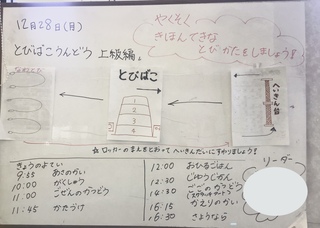 12月28日(月)
とびばこうんどう 上級編。
やくそく
きほんてきな
とびかたをしましょう!
とびばこ
1
2
3
4
へいきん台
☆ロッカーの
へいきんだいに
きょうのよてい
9:55 あさのかい
10:00 がくしゅう
11:00 ごぜんのかつどう
11:45 かたづけ
12:00 おひるごはん
12:30 じゆうじかん
14:30 ごごのかつどう
16:15 かえりのかい
16:30 さようなら
リーダー